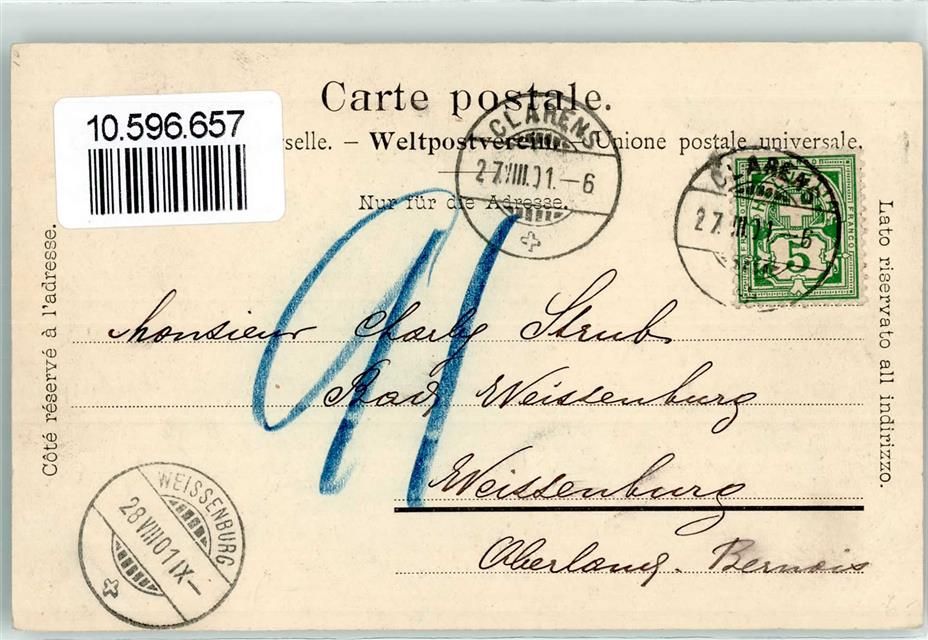 Carte postale.
10.596.657
rselle. – Weltpostverein. – Unione postale universale.
Nur für die Adresse.
CLARENS
27.VIII.01.–6
CLARENS
27.VIII.01.–6
FRANCO
5
Côté réservé à l'adresse.
Lato riservato all indirizzo.
91
Monsieur Charly Strub
Bad Weissenburg
Weissenburg
Oberland. Bernois
WEISSENBURG
28 VIII 01 IX–